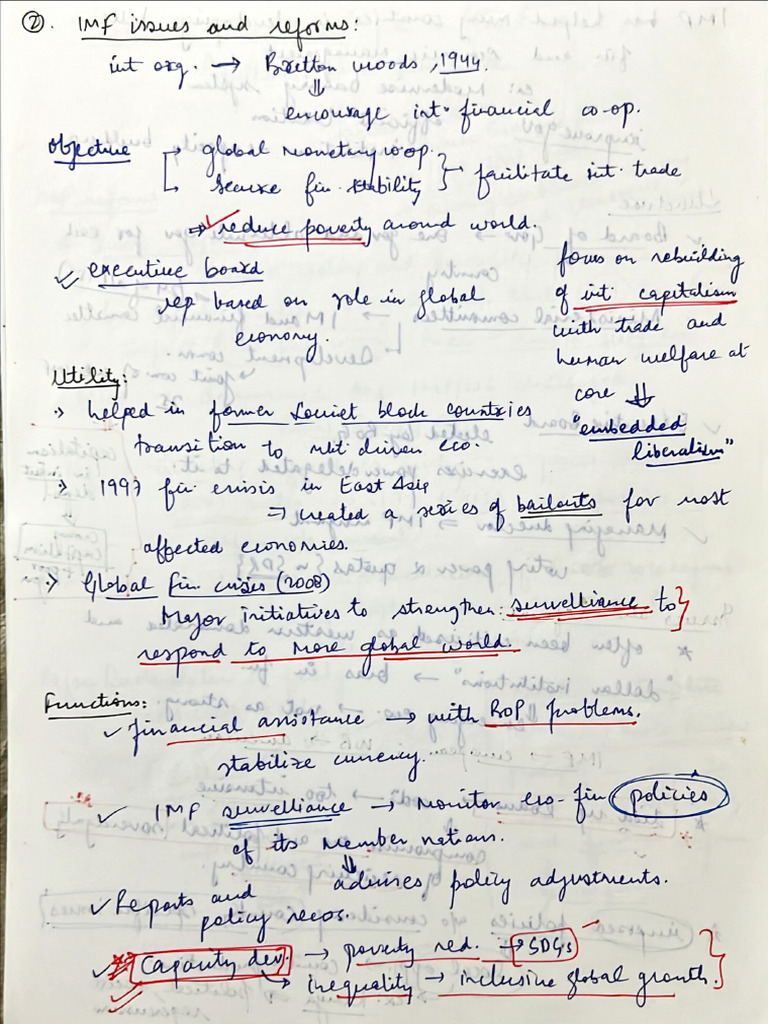 ②. IMF issues and reforms:
int org. → Bretton woods, 1944.
⇓
encourage int· financial co-op.
Objective → global Monetary co-op.
↳ secure fin. stability } → facilitate int. trade
⇒ reduce poverty around world.
✓ executive board
rep based on role in global
economy.
focus on rebuilding
of int· capitalism
with trade and
human welfare at
core ⇓
"embedded
liberalism"
Utility:
→ helped in former Soviet block countries
transition to mkt driven eco.
→ 1997 fin crisis in East Asia
⇒ created a series of bailouts for most
affected economies.
→ Global fin crisis (2008)
Major initiatives to strengthen surveillance to
respond to more global world.
Functions:
✓ financial assistance → with BOP problems.
stabilize currency.
✓ IMF survelliance → Monitor eco-fin policies
of its Member nations.
↓
advises policy adjustments.
✓ Reports and
policy recos.
✓ Capacity dev. → poverty red. → SDGs
✓ → inequality → inclusive global growth.